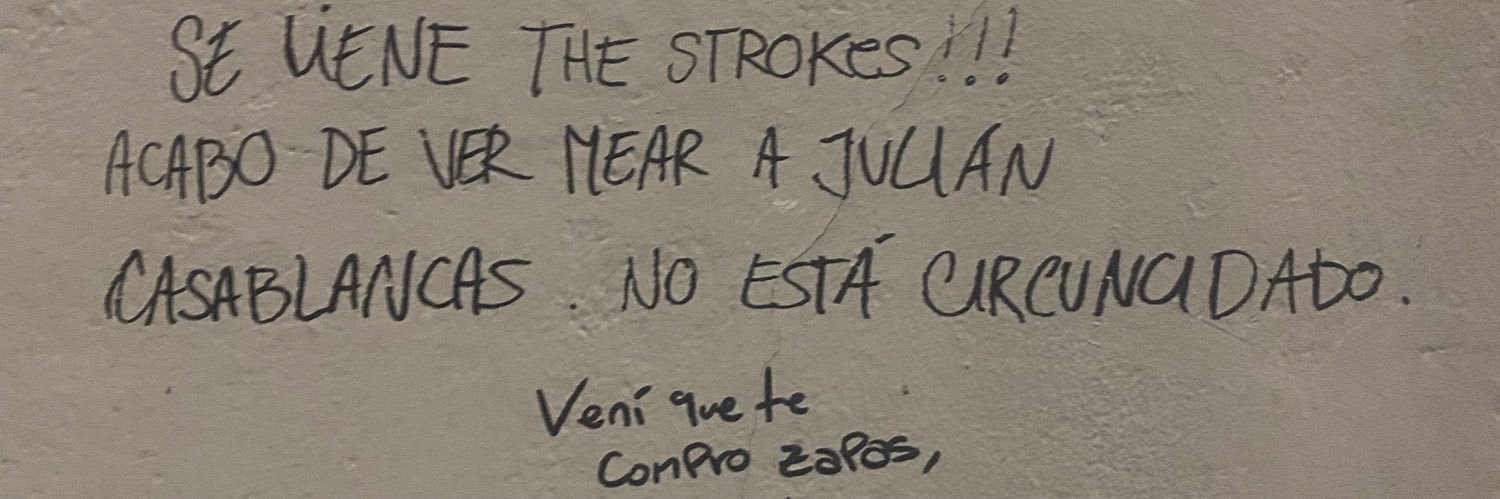 SE VIENE THE STROKES!!!
ACABO DE VER MEAR A JULIÁN
CASABLANCAS. NO ESTÁ CIRCUNCIDADO.
Vení que te
compro zapas,